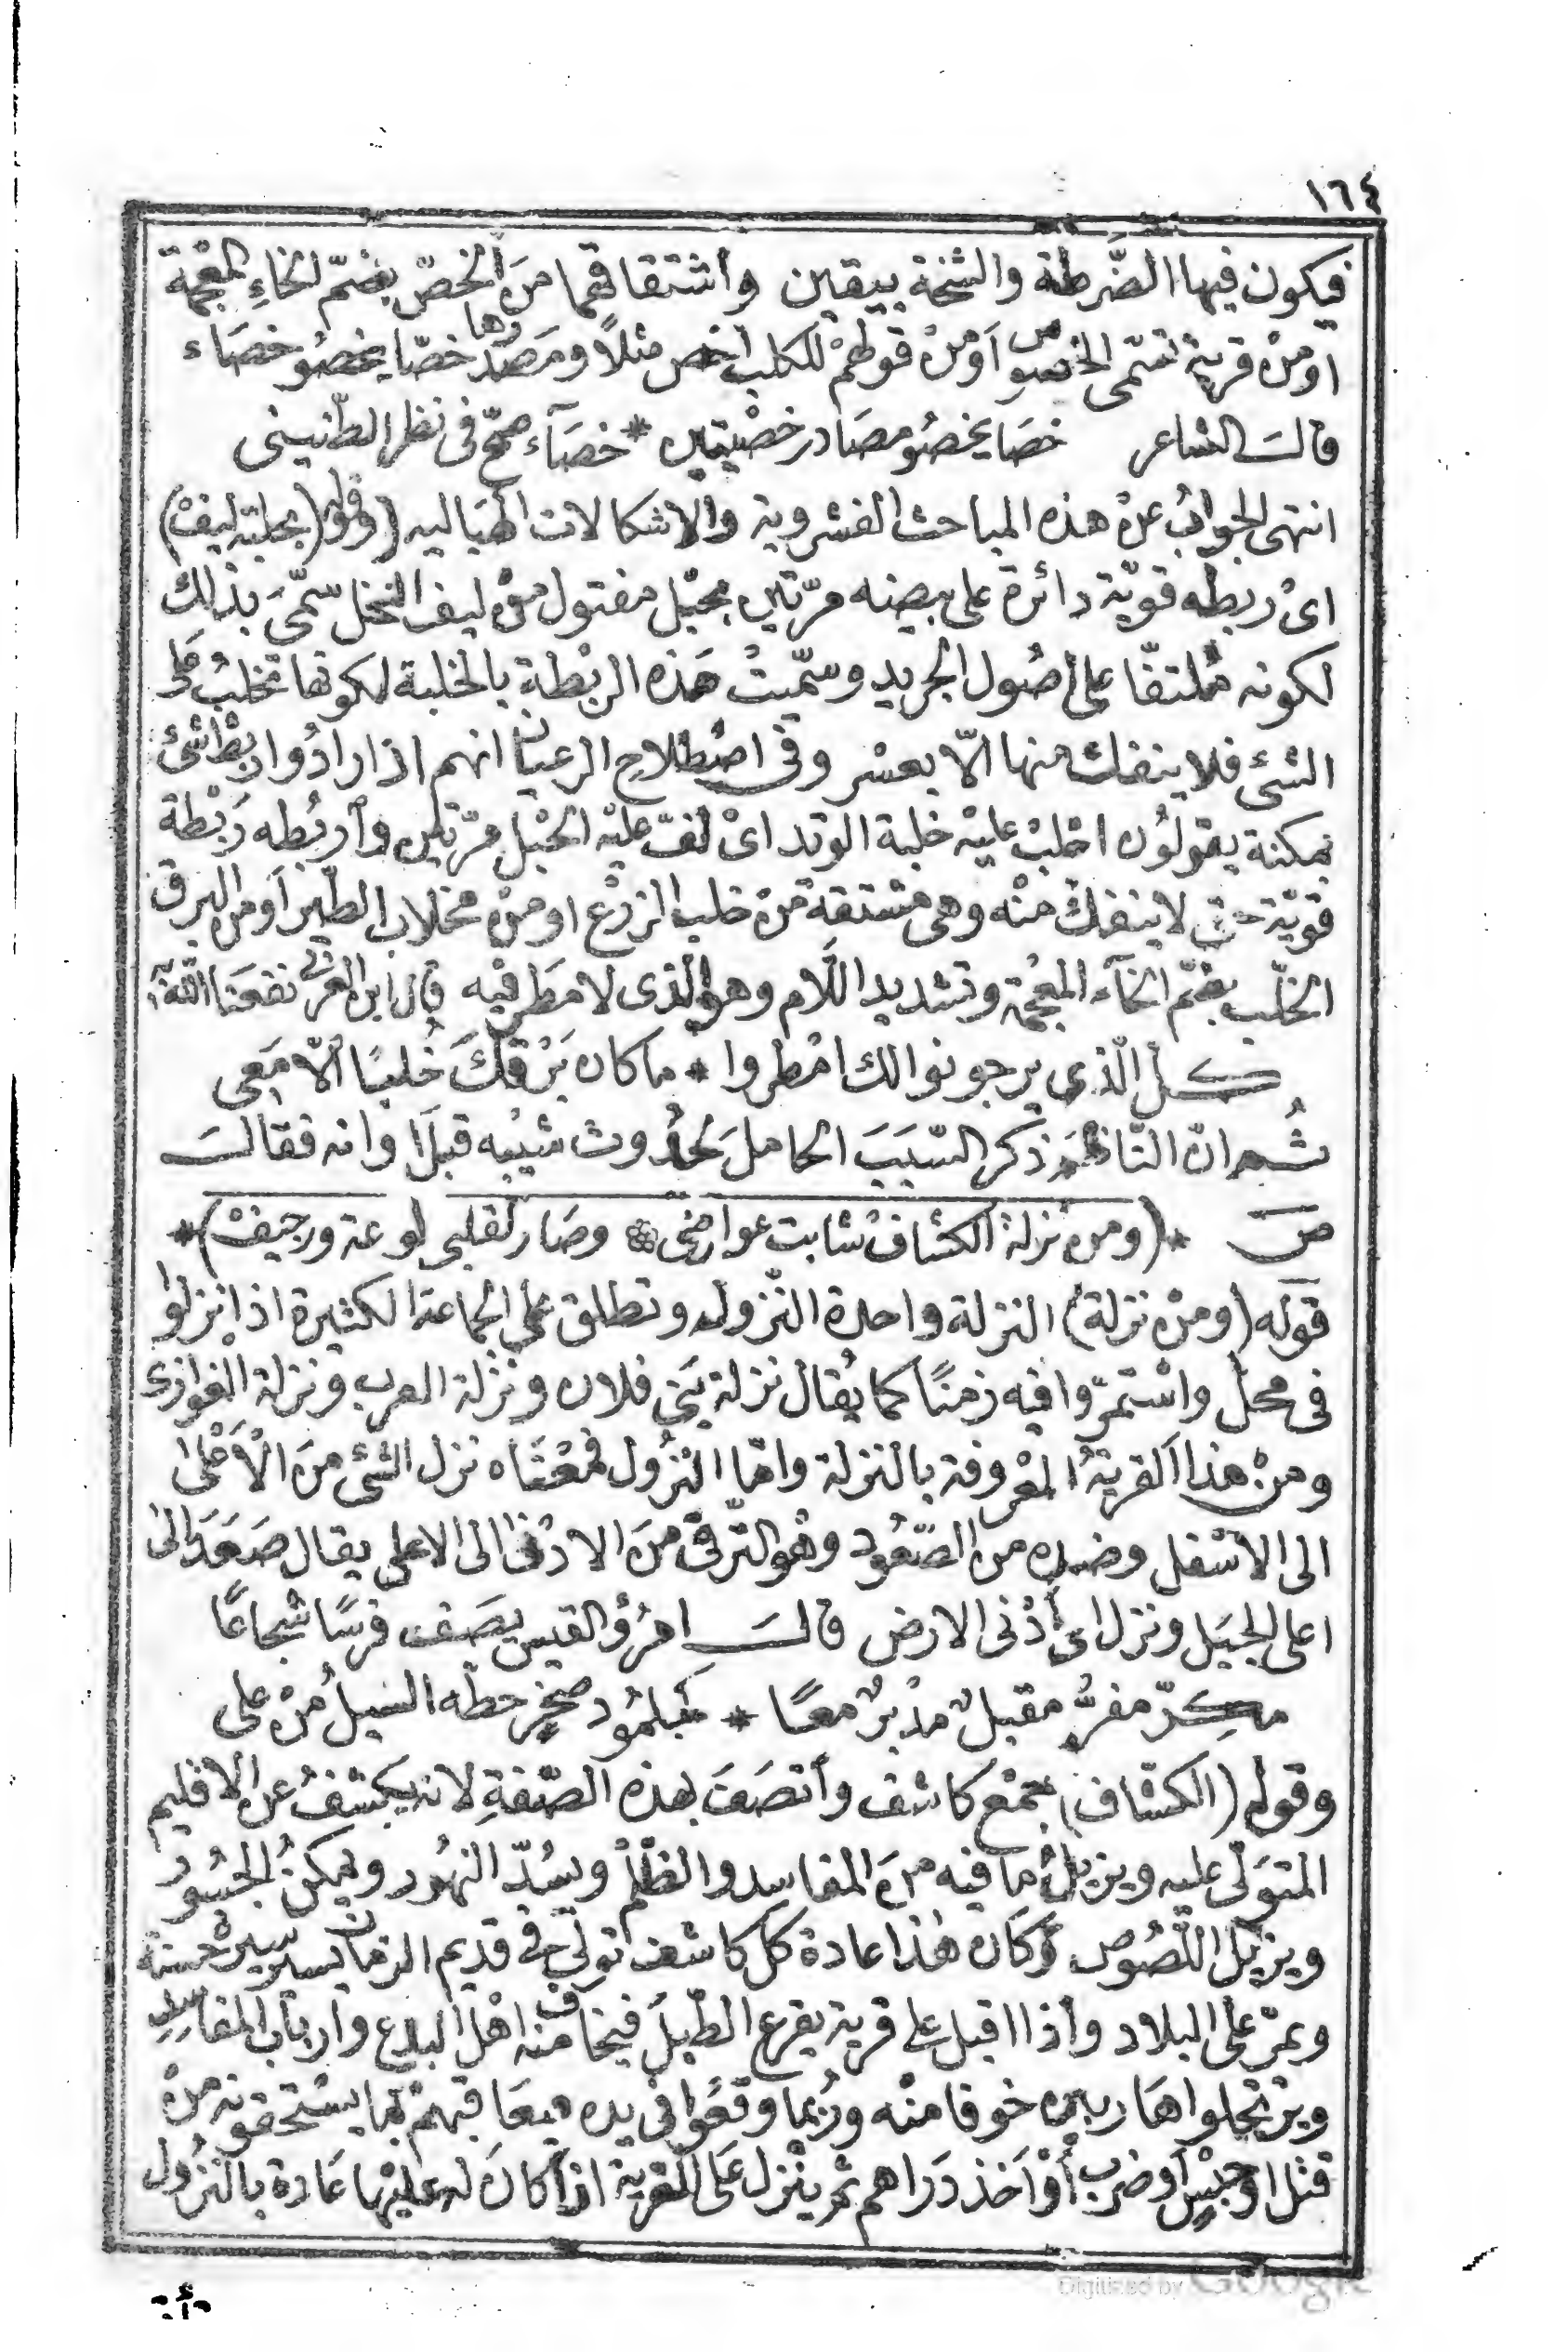 ١٦٤
فيكون فيها الضّرطة والشخة بيقين واشتقاقهما من الخصّ بضمّ الخاءِ المعجمة
او منْ قرية تسمّى الخصوص اَو منْ قولهمْ للكلب اخص مثلاً ومصدرها خصّا يخصُو خصَاء
قالـَ الشاعر خصَا يخصُو مصَادر خصْيتين * خصَآء صحّ فى نظر الطّنينى
انتهى الجوابُ عنْ هذه المباحث الفشروية والاشكالات الهبَاليه (وقوله (بخلبة ليفْ)
اىْ ربطه قويّة دائرة على بيضه مرّتين بحبْل مفتول منْ ليف النخل سمّىَ بذلك
لكونه مُلتفّا على اصُول الجريد وسمّيتْ هَذه الربْطة بالخلبة لكونها تخلبُ على
الشئ فلا ينفك منها الاّ بعسْر وفى اصْطلاحِ الرعيان انهم اذا رادُوا ربْط شئ
بمكنة يقولُون اخلبْ عليْه خلبة الوتد اىْ لفّ عليْه الحبْل مرّتين واَربُطه رَبْطة
قويّة حتى لا ينفكّ منْه وهى مشتقة منْ خلب الزرْع او منْ مخلاب الطّير اَو من البرق
الخلّب بضمّ الخآء المعْجمة وتشديد اللّام وهو الّذى لا مطر فيْه قال ابن العربى نفعَنا اللّه به
كـل الّذى يرجو نوالك امْطروا * ما كان بَرْقكَ خُلبًا الّا مَعى
ثُـم انّ النّاظم ذكر السّبَبَ الحاملَ لحُدُوث شيْبه قبلَ اوانه فقالـَ
صَ * (ومن نزلة الكشاف شابت عوارضى وصَار لقلبى لوعة ورجيفْ) *
قوله (ومنْ نزلة) النزلة واحدة النّزول وتطلق على الجماعة الكثيرة اذا نزلوا
فى محلّ واسْتمرّوا فيه زمنًا كما يُقال نزلة بَنى فلان ونزلة العرب ونزلة الغوازى
ومنْ هذا القريةُ المعْروفة بالنزلة وامّا النزُول فمعْناه نزل الشئ منَ الْاَعْلى
الى الاسْفل وضده من الصّعُود وهُو التّرقّى منَ الادْنى الى الاعلى يقال صَعَدَ الى
اعلى الجبَل ونزل اى اَدْنى الارض قالـَ امرُؤ القيس يصَف فرسًا شجاعًا
مكرّ مفرٌّ مقبلٌ مدْبرٌ معًا * كَجلمُود صخْرٍ حطّه السَيلُ منْ على
وقوله (الكشّاف) جمْع كاشف واتصَفَ بهذه الصّفةِ لانه يكشفُ عن الاقليم
المتوَلّى عليه ويزيلُ ما فيه منَ المفاسد والظلْم ويسُدّ النهُور ويمكنُ الجسُور
ويزيل اللّصُوص وكَان هٰذا عادة كل كاشف تولّى فى قديم الزمان يسير سيرة حسنة
ويمرّ على البلاد واذا اقبل على قرية يقرع الطّبلُ فيخاف منه اهْل البدع وارباب المفاسد
ويرتحلوا هَاربين خوفا منْه ورُبما وقعُوا فى يده فيعَاقبهمْ بما يسْتحقونه منْ
قتْل اوْ حبْس اَو ضرب أوْ اَخذ دَراهم ثم ينْزل عَلى القرية اذا كانَ له عليْها عَادة بالنزُول